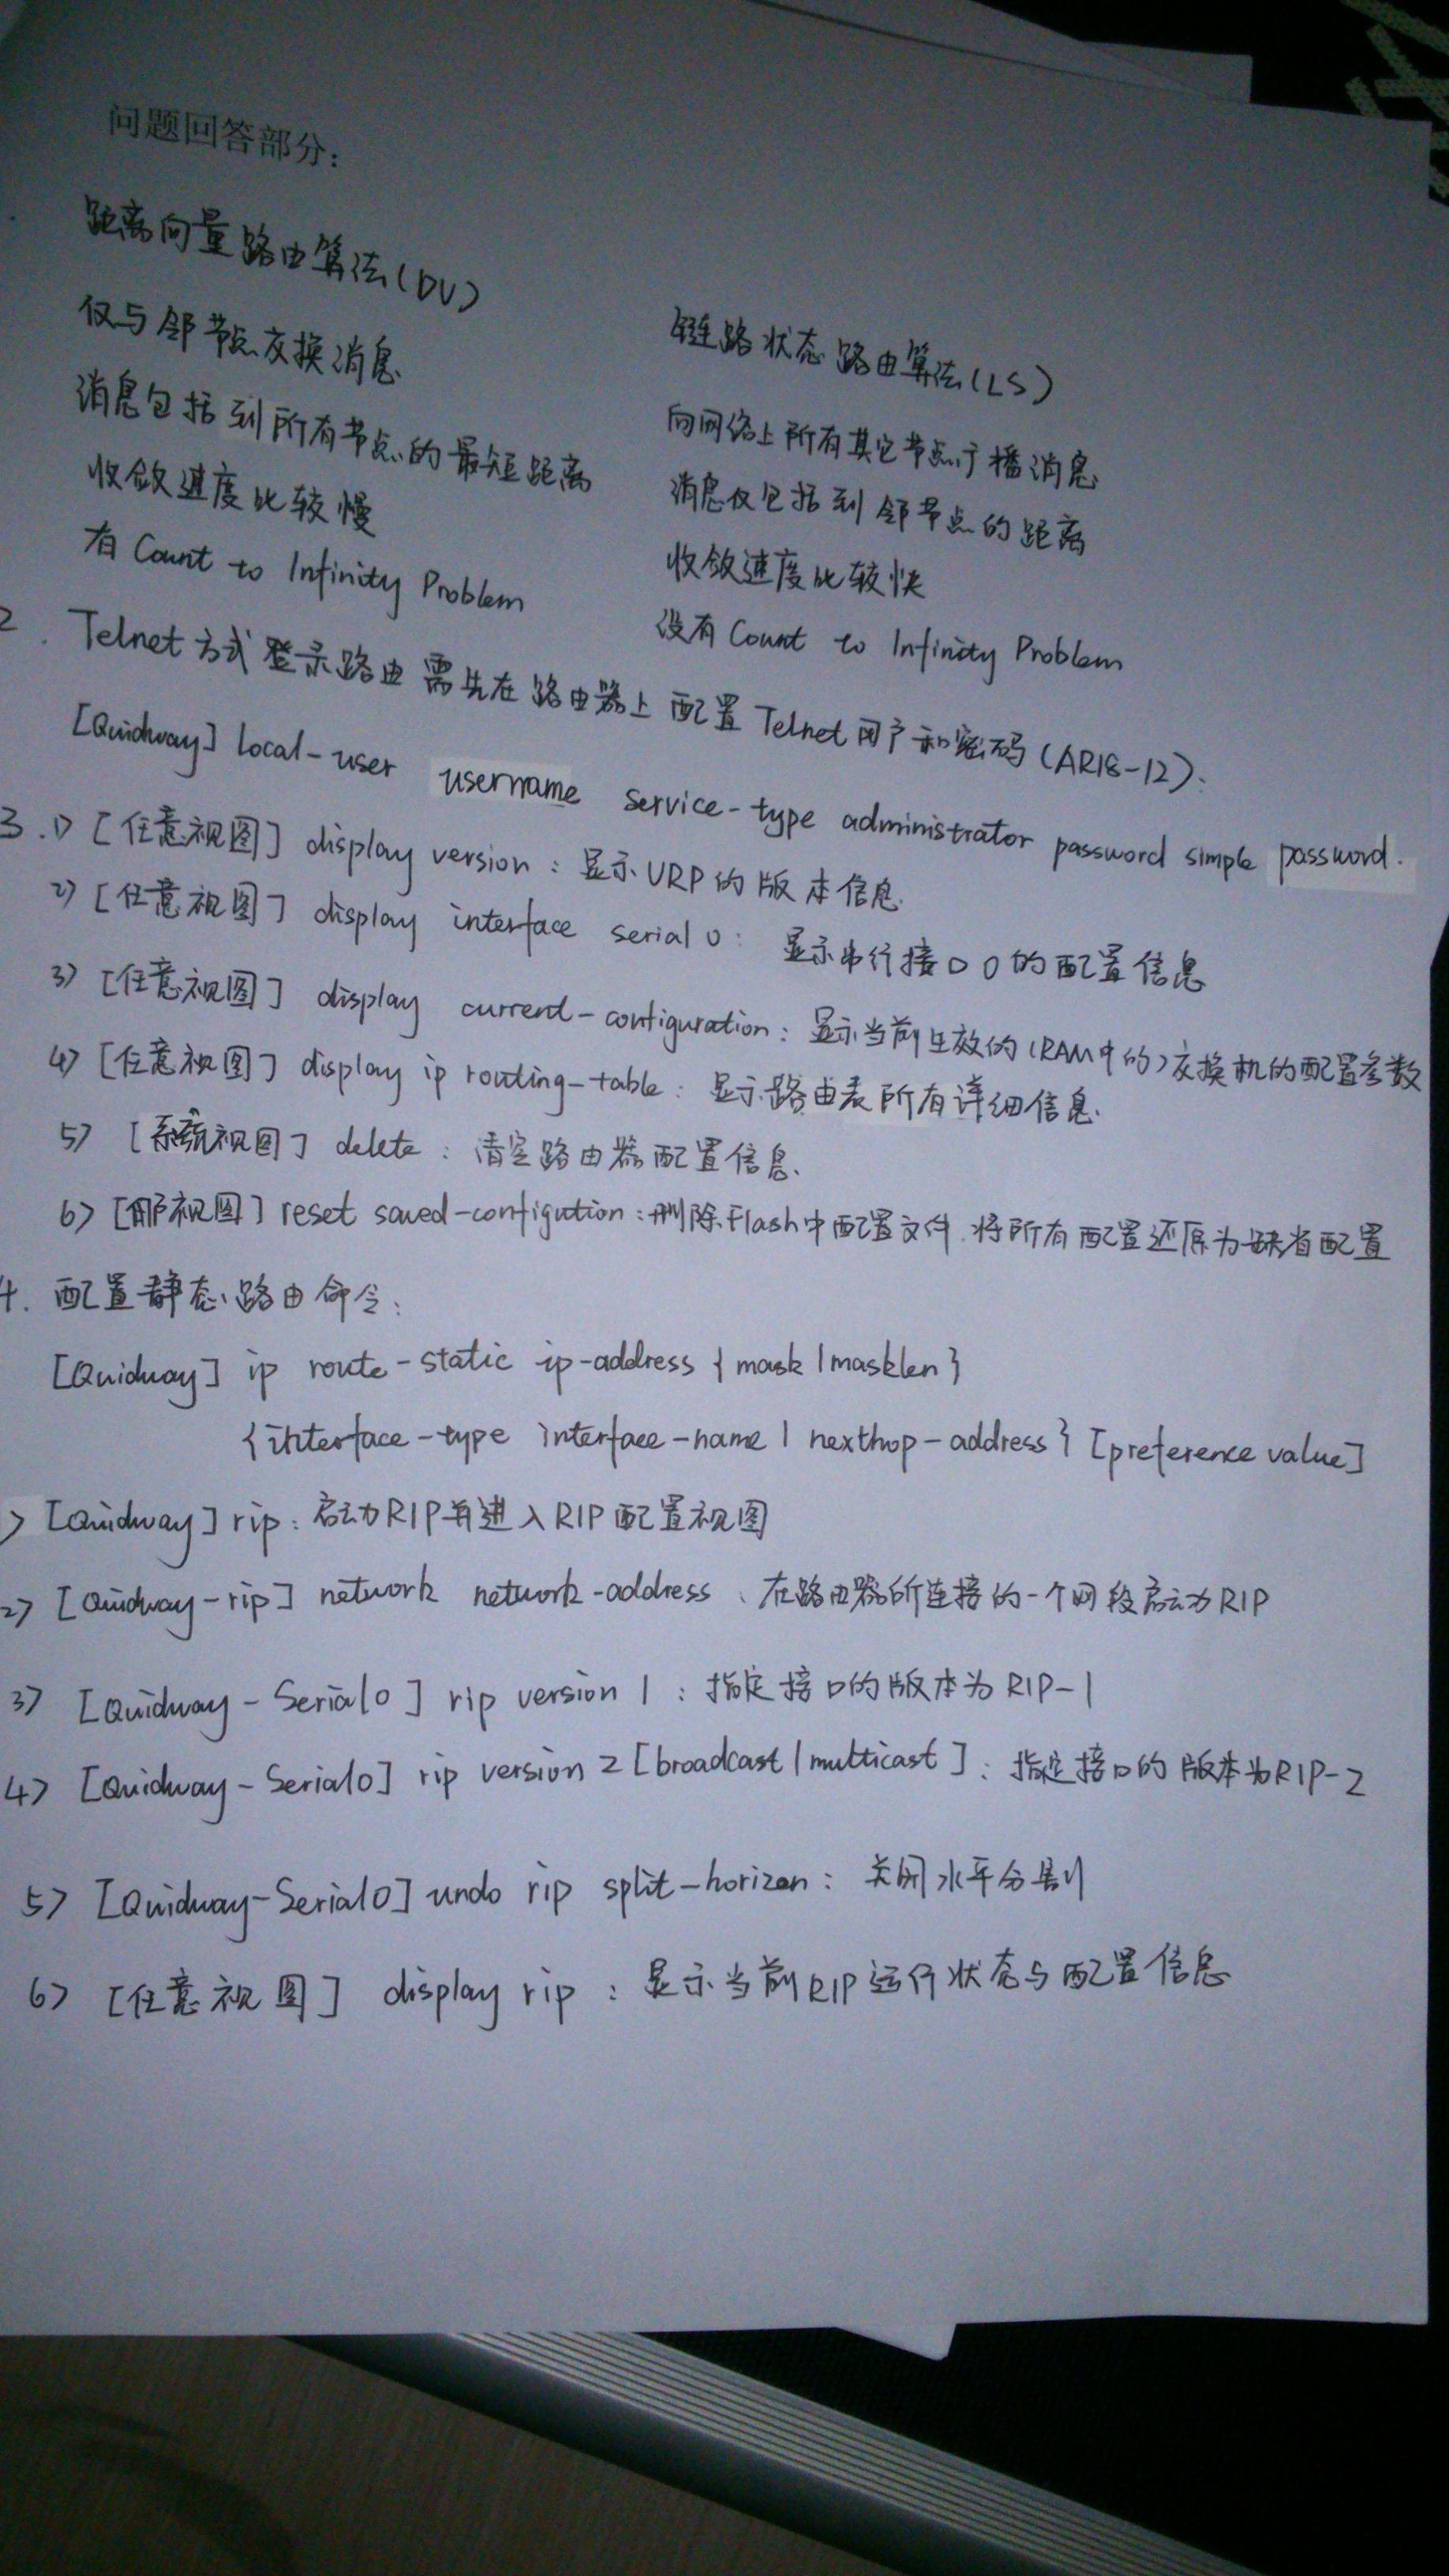 问题回答部分:
距离向量路由算法(DV)
仅与邻节点交换消息
消息包括到所有节点的最短距离
收敛速度比较慢
有 Count to Infinity Problem
链路状态路由算法(LS)
向网络上所有其它节点广播消息
消息仅包括到邻节点的距离
收敛速度比较快
没有 Count to Infinity Problem
2. Telnet方式登录路由需先在路由器上配置Telnet用户和密码(AR18-12):
[Quidway] local-user username service-type administrator password simple password.
3.1) [任意视图] display version: 显示VRP的版本信息.
2) [任意视图] display interface serial 0: 显示串行接口0的配置信息
3) [任意视图] display current-configuration: 显示当前生效的(RAM中的)交换机的配置参数
4) [任意视图] display ip routing-table: 显示路由表所有详细信息.
5) [系统视图] delete: 清空路由器配置信息.
6) [视图] reset saved-configution: 删除Flash中配置文件.将所有配置还原为缺省配置
4. 配置静态路由命令:
[Quidway] ip route-static ip-address { mask | masklen }
{interface-type interface-name | nexthop-address} [preference value]
) [Quidway] rip: 启动RIP并进入RIP配置视图
2) [Quidway-rip] network network-address 、在路由器所连接的一个网段启动RIP
3) [Quidway-Serial0] rip version 1 : 指定接口的版本为RIP-1
4) [Quidway-Serial0] rip version 2 [broadcast | multicast]: 指定接口的版本为RIP-2
5) [Quidway-Serial0] undo rip split-horizon: 关闭水平分割
6) [任意视图] display rip : 显示当前RIP运行状态与配置信息